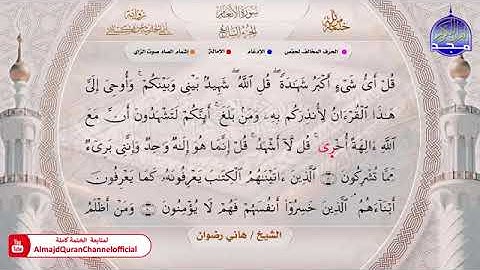 سورة الأنعام
الجزء السابع
الحرف المخالف لحفص
الإدغام
الإمالة
إشمام الصاد صوت الزاي
قُلْ أَىُّ شَىْءٍ أَكْبَرُ شَهَٰدَةً ۖ قُلِ ٱللَّهُ ۖ شَهِيدٌۢ بَيْنِى وَبَيْنَكُمْ ۚ وَأُوحِىَ إِلَىَّ
هَٰذَا ٱلْقُرْءَانُ لِأُنذِرَكُم بِهِۦ وَمَنۢ بَلَغَ ۚ أَئِنَّكُمْ لَتَشْهَدُونَ أَنَّ مَعَ
ٱللَّهِ ءَالِهَةً أُخْرَىٰ ۚ قُل لَّآ أَشْهَدُ ۚ قُلْ إِنَّمَا هُوَ إِلَٰهٌ وَٰحِدٌ وَإِنَّنِى بَرِىٓءٌ
مِّمَّا تُشْرِكُونَ ۝ ٱلَّذِينَ ءَاتَيْنَٰهُمُ ٱلْكِتَٰبَ يَعْرِفُونَهُۥ كَمَا يَعْرِفُونَ
أَبْنَآءَهُمُ ۘ ٱلَّذِينَ خَسِرُوٓا۟ أَنفُسَهُمْ فَهُمْ لَا يُؤْمِنُونَ ۝ وَمَنْ أَظْلَمُ
الشيخ / هاني رضوان
لمتابعة الختمة كاملة
AlmajdQuranChannelofficial